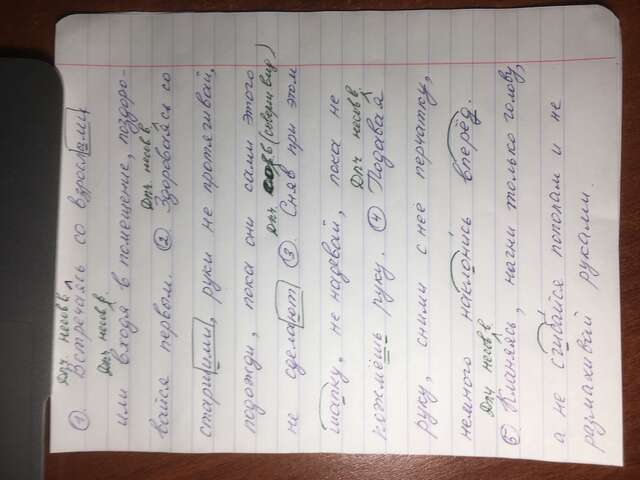 Дпч. несов в.
① Встречаясь со взрослыми
Дпч. несов в.
или входя в помещение, поздоро-
Дпч. несов в.
вайся первым. ② Здороваясь со
старшими, руки не протягивай,
подожди, пока они сами этого
Дпч. сов.в (соверш вид)
не сделают ③ Сняв при этом
шапку, не надевай, пока не
Дпч несов в.
пожмёшь руку. ④ Подавая
руку, сними с неё перчатку,
немного наклонись вперёд.
Дпч несов. в.
5. Кланяясь, нагни только голову,
а не сгибайся пополам и не
размахивай руками.